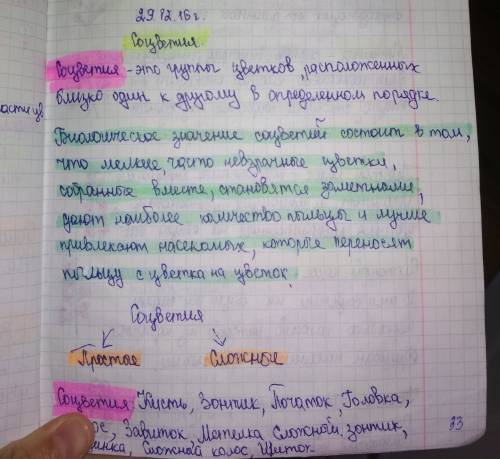 29.12.16г.
Соцветия.
Соцветия - это группы цветков, расположенных
близко один к другому в определенном порядке.
Биологическое значение соцветий состоит в том,
что мелкие, часто невзрачные цветки,
собранные вместе, становятся заметными,
дают наиболее количество пыльцы и лучше
привлекают насекомых, которые переносят
пыльцу с цветка на цветок.
Соцветия
Простые Сложные
Соцветия: Кисть, Зонтик, Початок, Головка,
Завиток, Метелка, Сложный зонтик,
Сложный колос, Щиток.
33